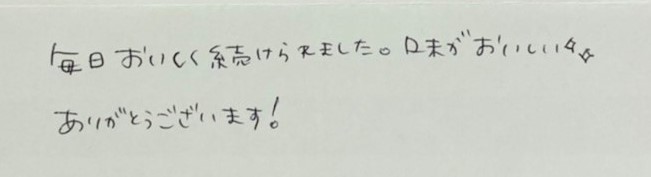 毎日おいしく続けられました。味がおいしい✧✧
ありがとうございます!